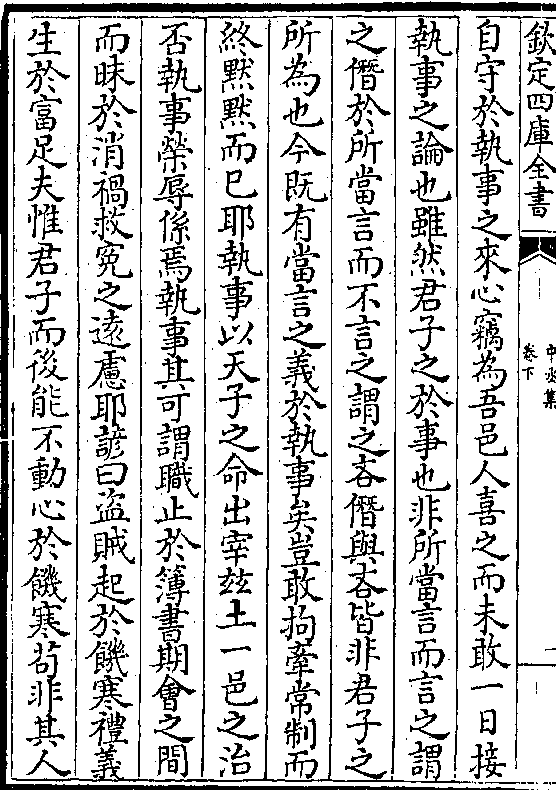 欽定四庫全書
中丞集
卷下
自守於執事之來心竊為吾邑人喜之而未敢一日接
執事之論也雖然君子之於事也非所當言而言之謂
之僭於所當言而不言之謂之吝僭與吝皆非君子之
所為也今既有當言之義於執事矣豈敢拘牽常制而
終默默而已耶執事以天子之命出宰玆土一邑之治
否執事榮辱係焉執事其可謂職止於簿書期㑹之間
而昧於消禍救寃之逺慮耶諺曰盗賊起於饑寒禮義
生於富足夫惟君子而後能不動心於饑寒苟非其人